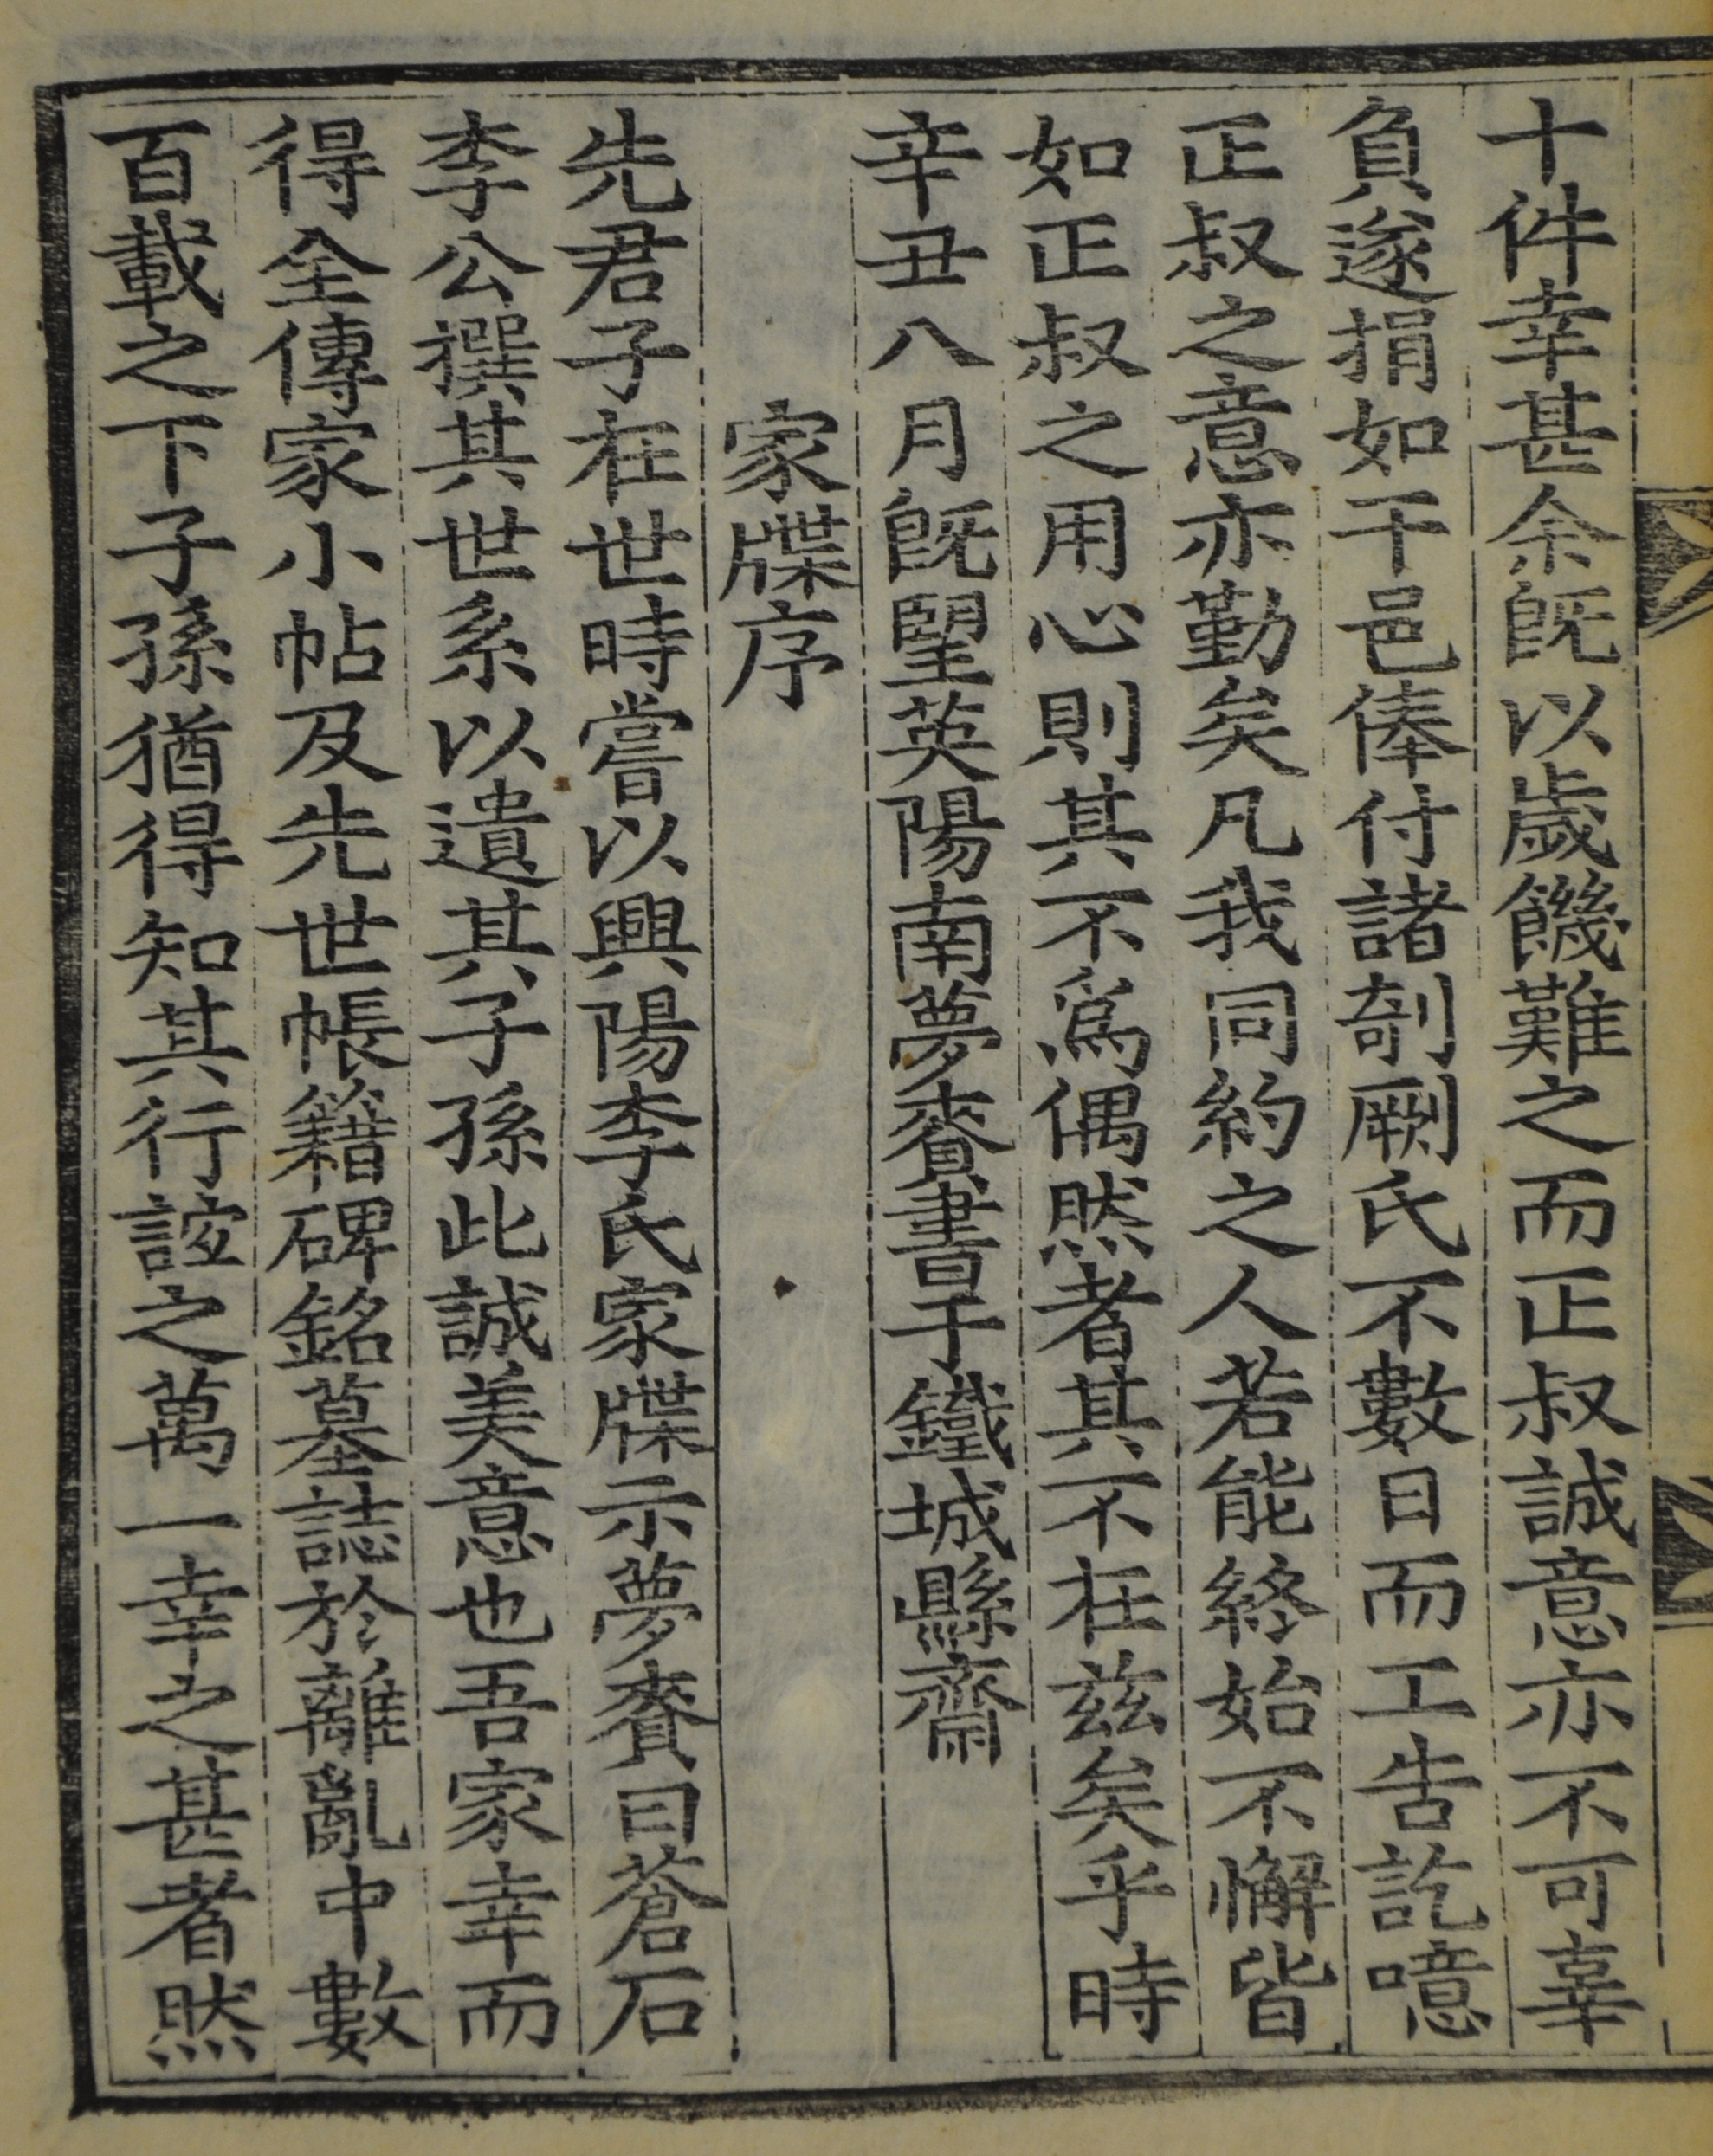 十件幸甚余旣以歲饑難之而正叔誠意亦不可辜
負遂捐如干邑俸付諸剞劂氏不數日而工告訖噫
正叔之意亦勤矣凡我同約之人若能終始不懈皆
如正叔之用心則其不爲偶然者其不在玆矣乎時
辛丑八月旣望英陽南夢賚書于鐵城縣齋
家牒序
先君子在世時嘗以興陽李氏家牒示夢賚曰蒼石
李公撰其世系以遺其子孫此誠美意也吾家幸而
得全傳家小帖及先世帳籍碑銘墓誌於離亂中數
百載之下子孫猶得知其行誼之萬一幸之甚者然